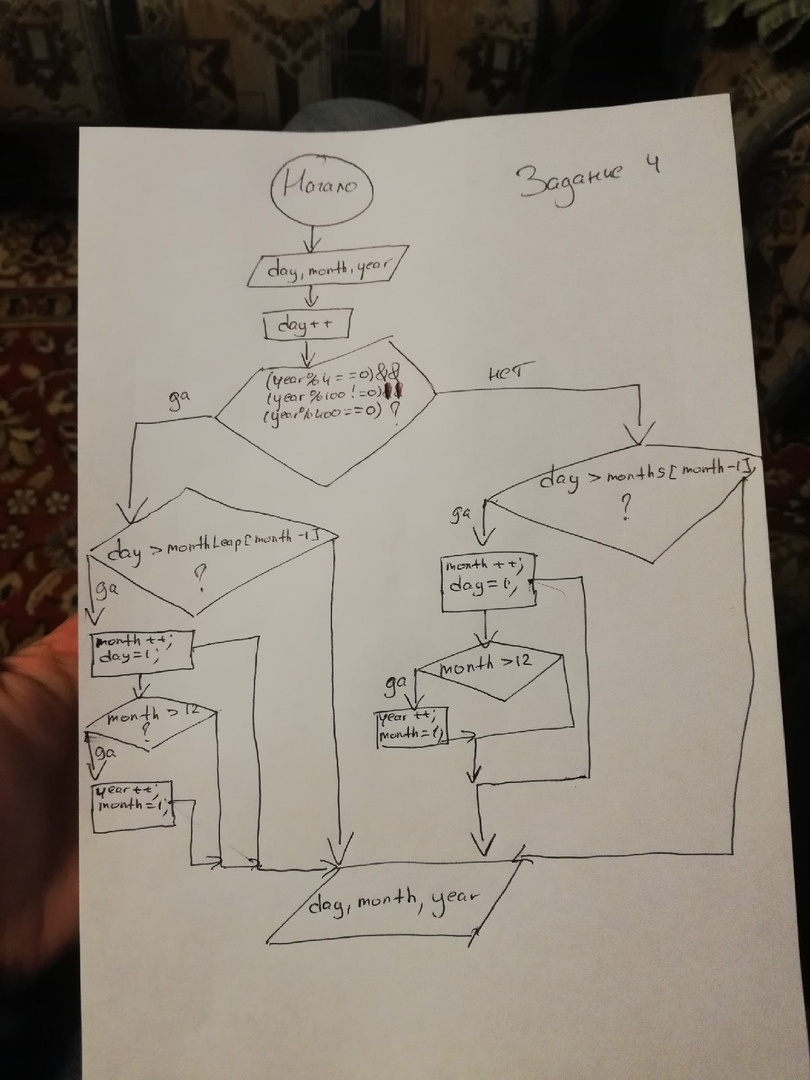 Задание 4
Начало
day, month, year
day++
(year%4==0)&&
(year%100!=0)||
(year%400==0) ?
да
нет
day > monthLeap[month-1]
?
day > months[month-1]
?
да
да
month ++;
day=1;
month ++;
day=1;
month > 12
?
month >12
да
да
year ++;
month=1;
year ++;
month=1;
day, month, year